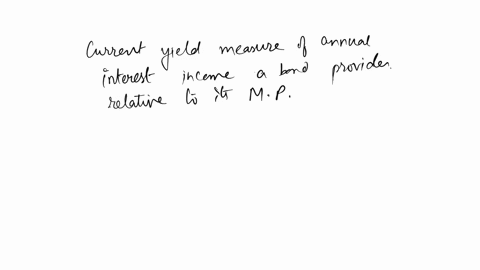 Current yield measure of annual
interest income a bond provides
relative to its M.P.